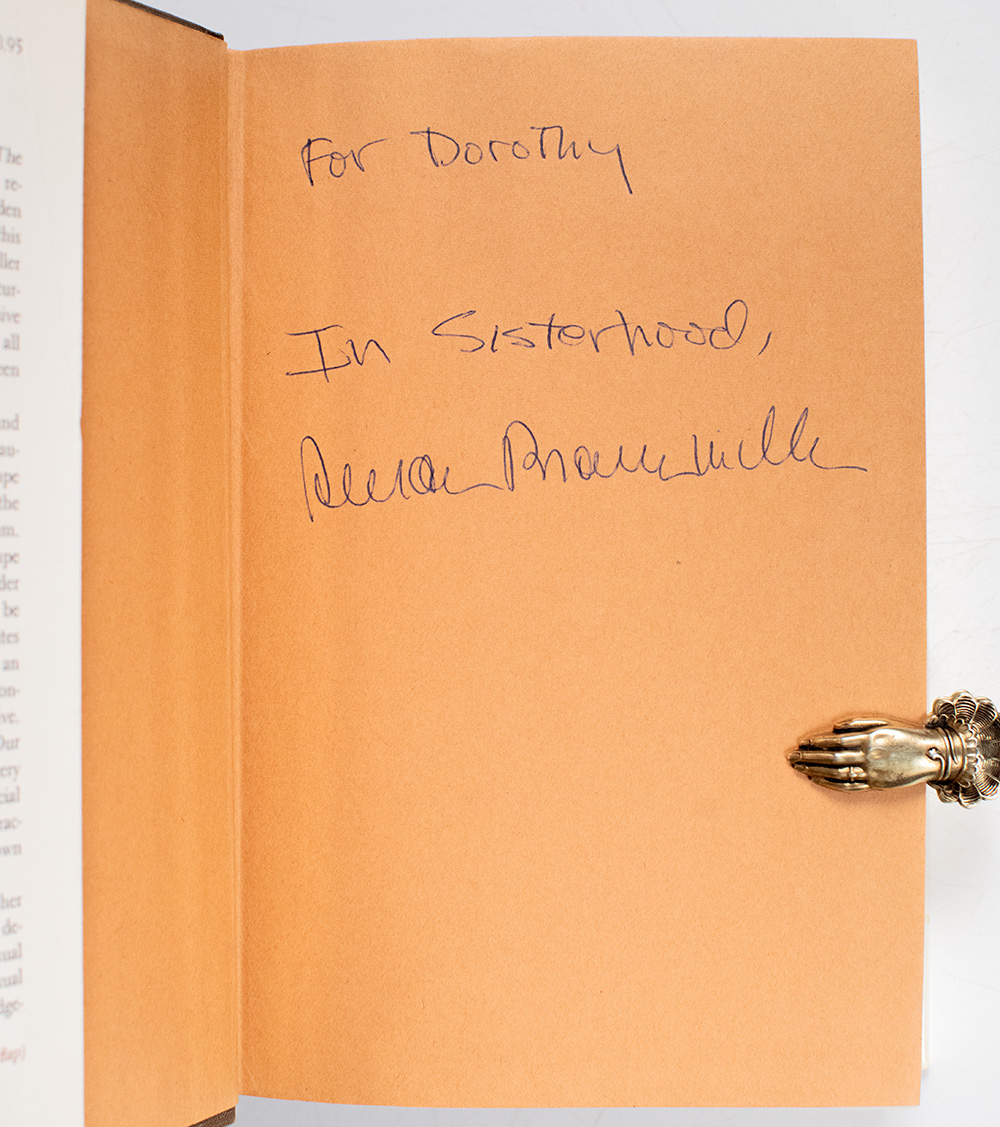 0.95
The
re-
den
this
ller
tur-
sive
all
een
and
au-
ape
the
m.
ape
der
be
tes
an
on-
ive.
Our
ery
cial
rac-
own
her
de-
xual
xual
dge-
flap)
For Dorothy
In Sisterhood,
Susan Brownmiller